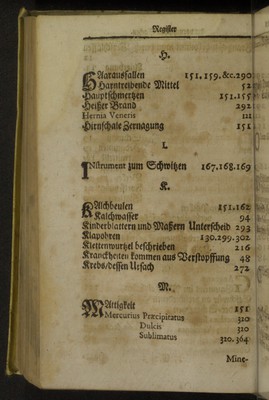 Register
H.
HAarausfallen 151.159.&c.290
Harntreibende Mittel 52
Hauptschmertzen 151.155
Heißer Brand 292
Hernia Veneris 111
Hirnschale Zernagung 151
I.
INstrument zum Schwitzen 167.168.169
K.
KAlchbeulen 151.162
Kalchwasser 94
Kinderblattern und Maßern Unterscheid 293
Klapohren 130.299.302
Klettenwurtzel beschrieben 216
Kranckheiten kommen aus Verstopffung 48
Krebs/dessen Ursach 272
M.
MAttigkeit 151
Mercurius Præcipitatus 310
Dulcis 310
Sublimatus 310.364
Mine-